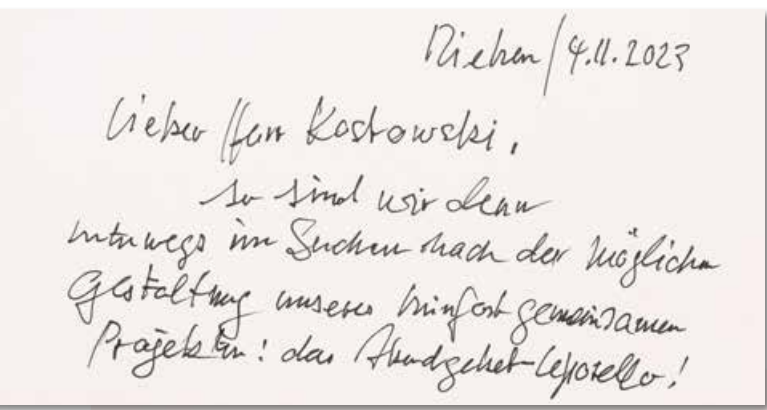 Riehen / 4.11.2023
Lieber Herr Kostowski,
so sind wir denn
unterwegs im Suchen nach der möglichen
Gestaltung unseres gemeinsamen
Projektes: das Abendgebet-Leporello!